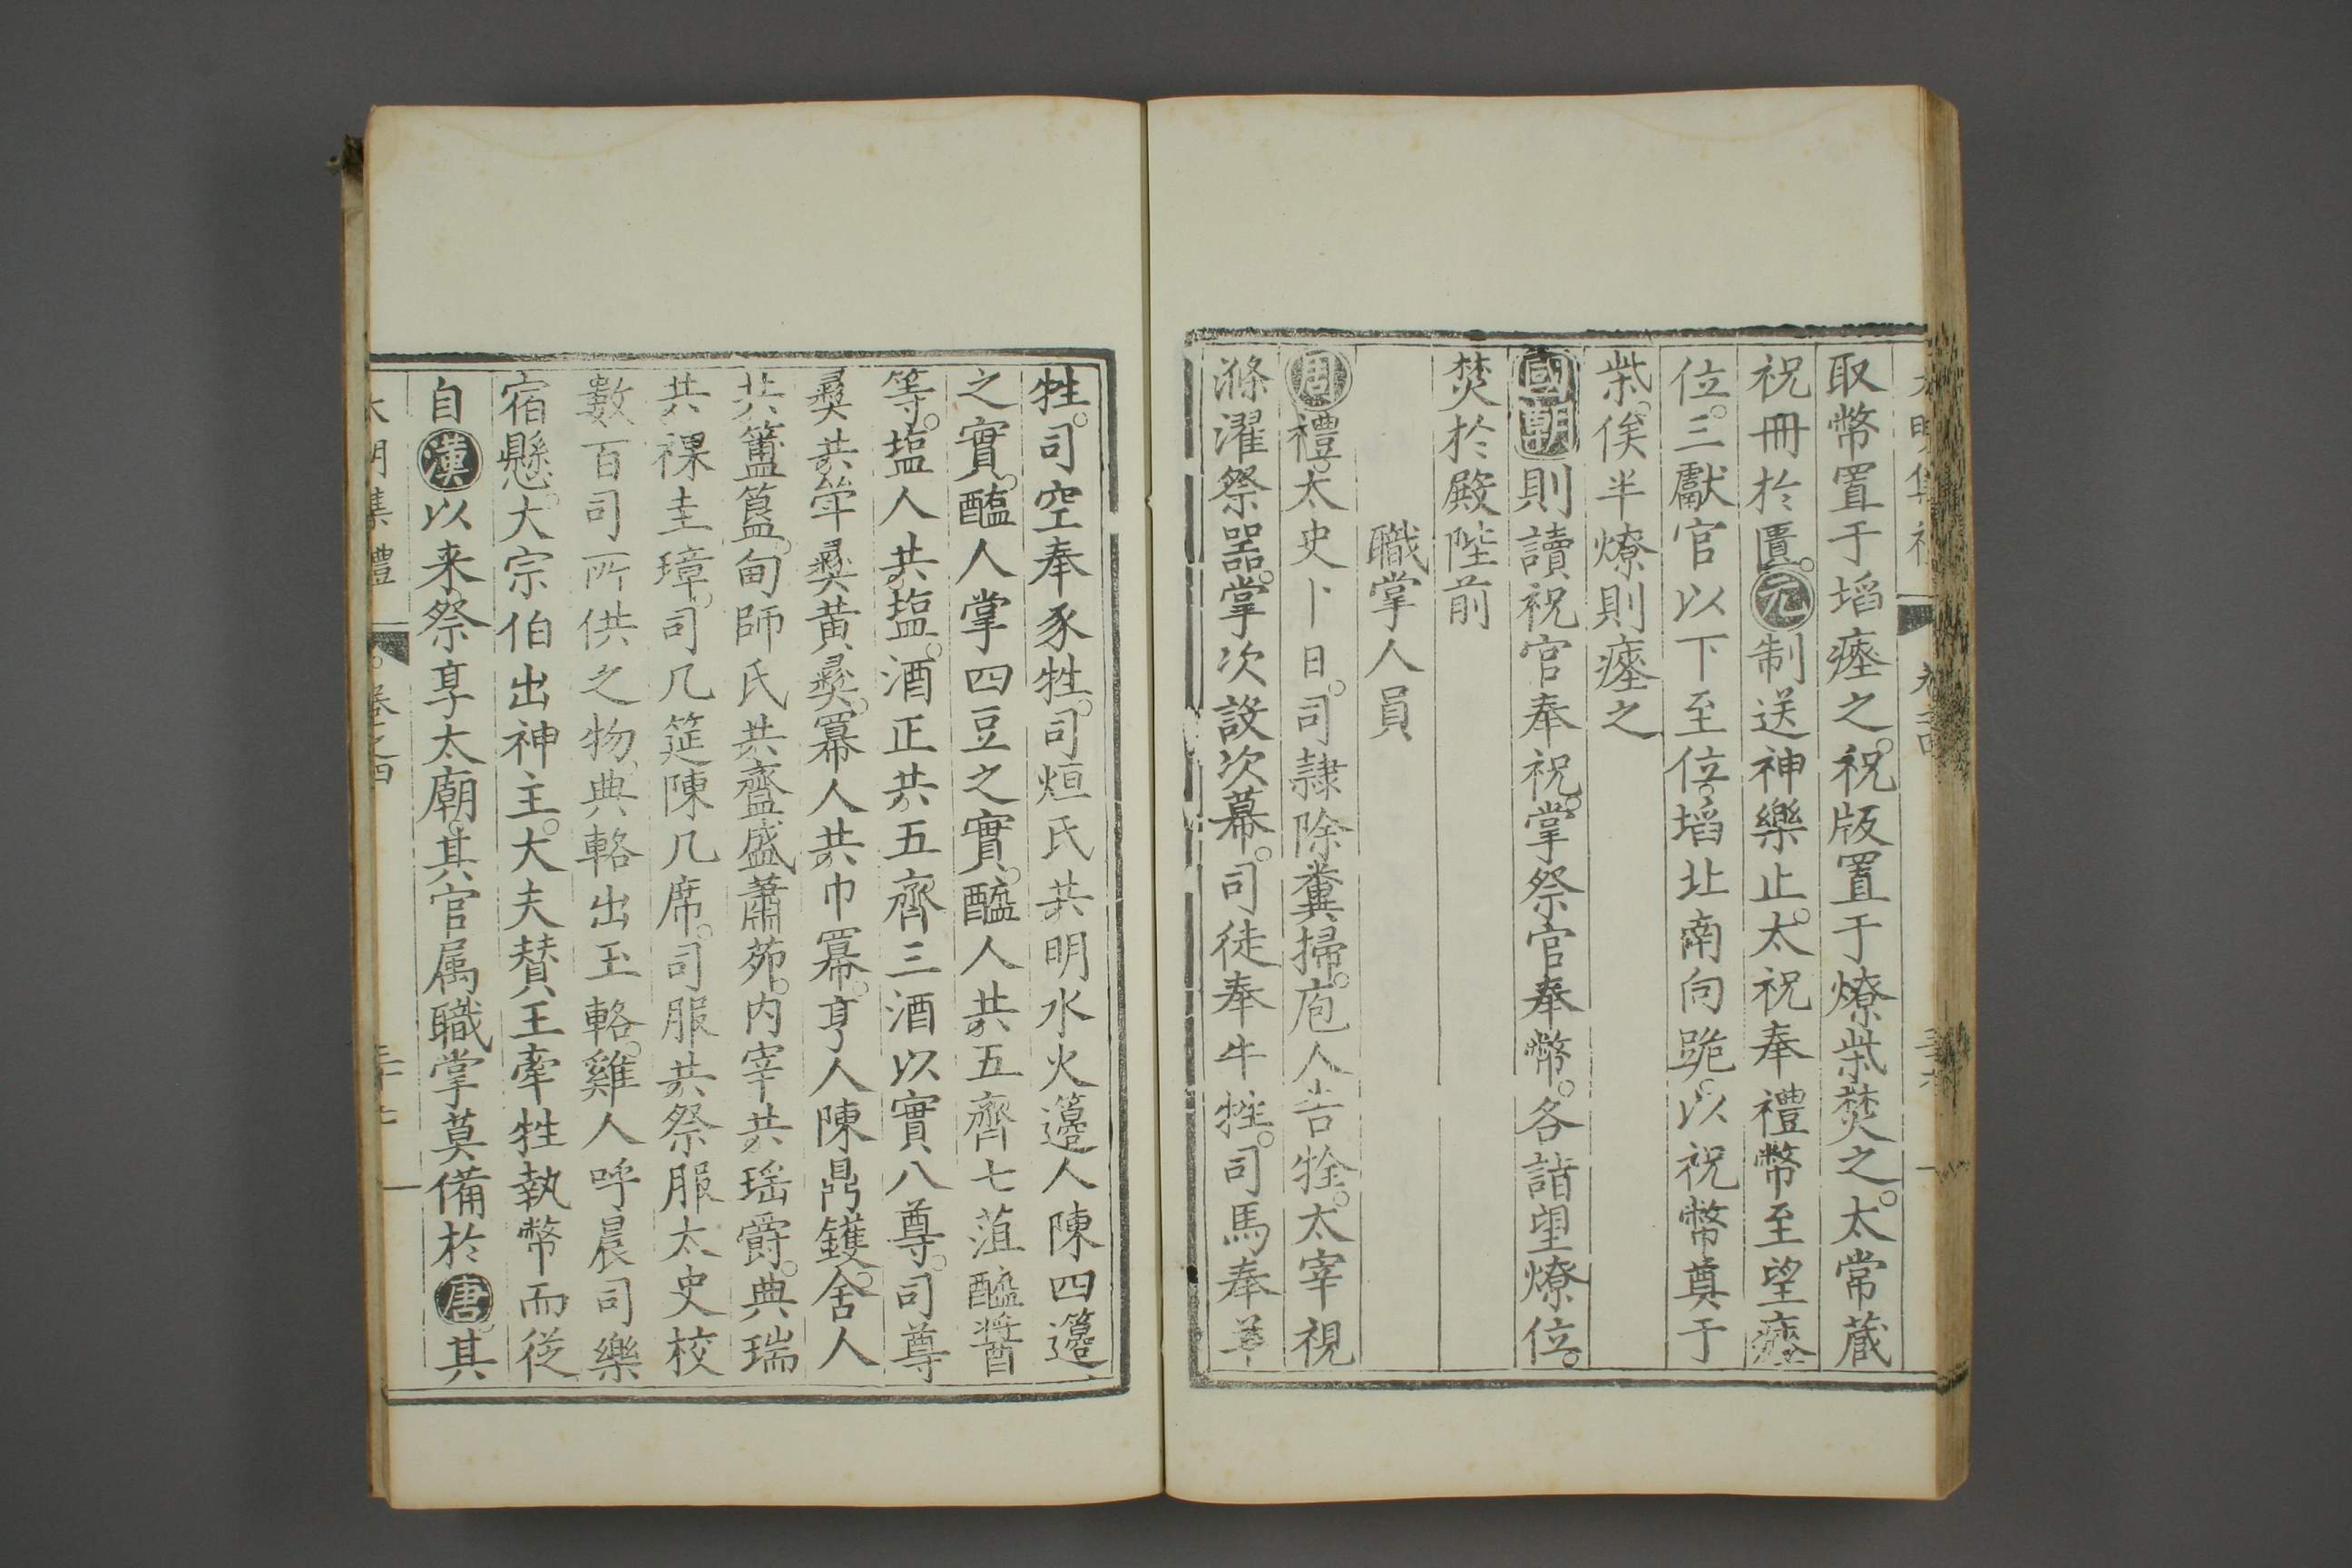 取幣置于埳瘞之。祝版置于燎柴焚之。太常蔵
祝冊於匱。元制送神樂止。太祝奉禮幣至望瘞
位。三獻官以下至位。埳北南向跪。以祝幣奠于
柴。俟半燎則瘞之
國朝則讀祝官奉祝。掌祭官奉幣。各詣望燎位。
焚於殿陛前
職掌人員
周禮。太史卜日。司隷除糞掃。庖人告牷。太宰視
滌濯祭器。掌次設次幕。司徒奉牛牲。司馬奉羊
牲。司空奉豕牲。司烜氏共明水火籩人陳四籩
之實。醢人掌四豆之實。醯人共五齊七菹醯醬
等。塩人共塩。酒正共五齊三酒以實八尊。司尊
彛共斚彛黄彛。冪人共巾冪。亨人陳鼎鑊。舍人
共簠簋。甸師氏共齍盛蕭茆。内宰共瑶爵。典瑞
共祼圭璋。司几筵陳几席。司服共祭服太史校
數百司所供之物、典輅出玉輅。雞人呼晨司樂
宿懸。大宗伯出神主。大夫賛王牽牲執幣而從
自漢以来祭享太廟。其官属職掌莫備於唐。其
大明集禮 卷之四